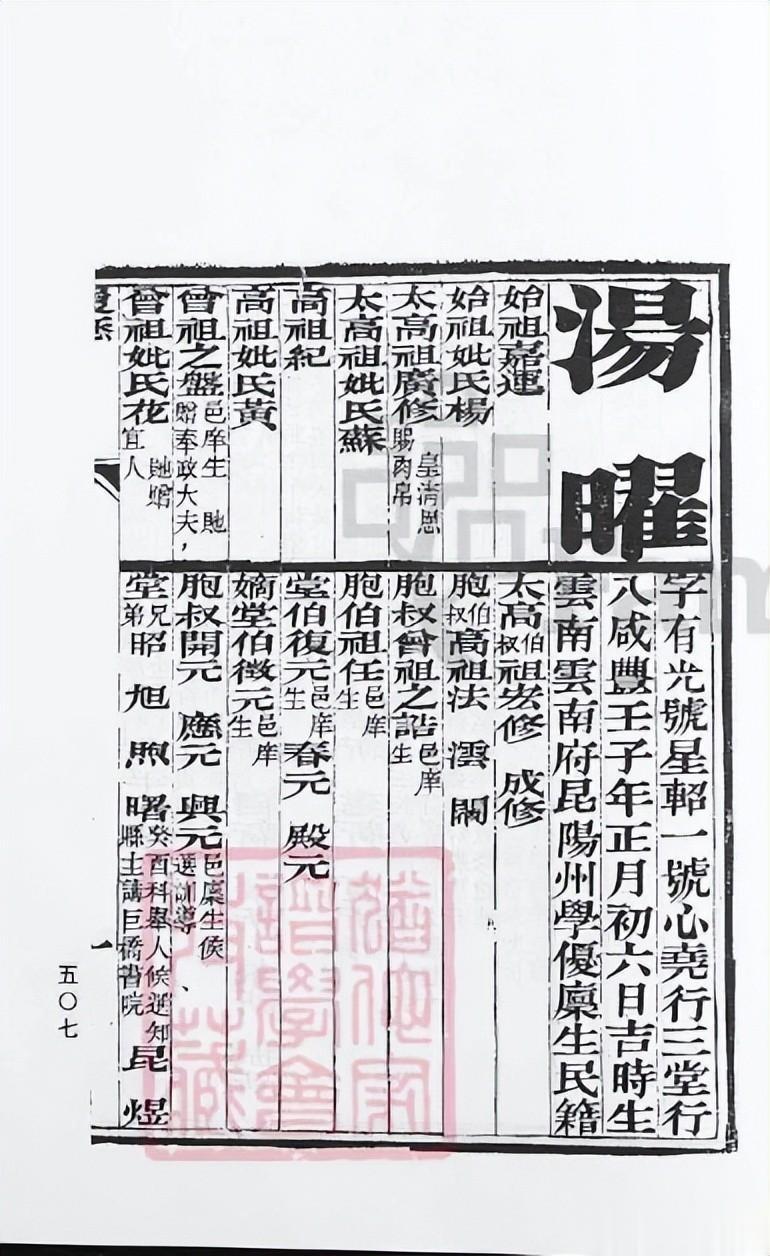 湯曜
字有光號星軺一號心堯行三堂行
八咸豐壬子年正月初六日吉時生
雲南雲南府昆陽州學優廩生民籍
始祖嘉運
始祖妣氏楊
太高祖廣修皇清恩賜肉帛
太高祖妣氏蘇
高祖紀
高祖妣氏黃
曾祖之盤邑庠生 貤贈奉政大夫，
曾祖妣氏花貤贈宜人
太高伯叔祖宏修 成修
胞伯叔高祖法 澐 閣
胞叔曾祖之誥邑庠生
胞伯祖任邑庠生
堂伯復元邑庠生 春元 殿元
嫡堂伯徵元邑庠生
胞叔開元 應元 興元邑廩生候選訓導、
堂兄弟昭 旭 煦 曙癸酉科舉人候選知縣主講巨橋書院 昆 煜
履歷
一
五〇七